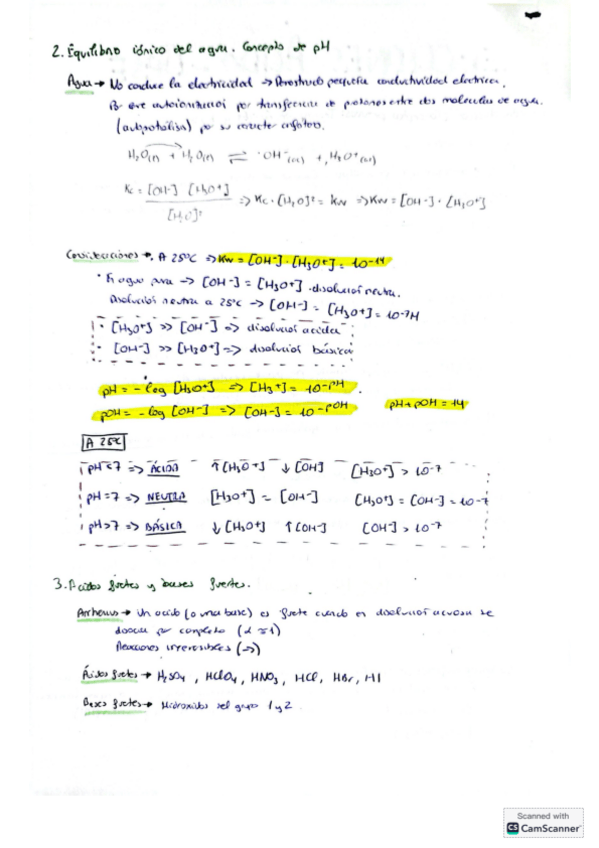 2. Equilibrio iónico del agua. Concepto de pH
Agua → No conduce la electricidad → Demostrado pequeña conductividad eléctrica.
autoionización por transferencia de protones entre dos moléculas de agua.
(autoprotólisis) por su carácter anfótero.
H₂O(l) + H₂O(l) ⇌ OH⁻(aq) + H₃O⁺(aq)
Kc = [OH-] [H3O+] / [H₂O]² => Kc · [H₂O]² = Kw => Kw = [OH-] · [H₃O+]
Consideraciones → · A 25ºC => Kw = [OH-] · [H3O+] = 10-14
· En agua pura → [OH-] = [H3O+] · disolución neutra.
Disolución neutra a 25ºC → [OH-] = [H3O+] = 10-7M
· [H3O+] >> [OH-] => disolución ácida
· [OH-] >> [H3O+] => disolución básica
pH = - log [H3O+] => [H3+] = 10-pH.
pOH = - log [OH-] => [OH-] = 10-pOH pH + pOH = 14
A 25ºC
pH < 7 => ÁCIDA ↑ [H3O+] ↓ [OH] [H3O+] > 10-7
pH = 7 => NEUTRA [H3O+] = [OH-] [H3O+] = [OH-] = 10-7
pH > 7 => BÁSICA ↓ [H3O+] ↑ [OH-] [OH-] > 10-7
3. Ácidos fuertes y bases fuertes.
Arrhenius → Un ácido (o una base) es fuerte cuando en disolución acuosa se
disocia por completo (α ≈ 1)
Reacciones irreversibles (→)
Ácidos fuertes → H₂SO₄, HClO₄, HNO₃, HCl, HBr, HI
Bases fuertes → Hidróxidos del grupo 1 y 2.
Scanned with
CS CamScanner